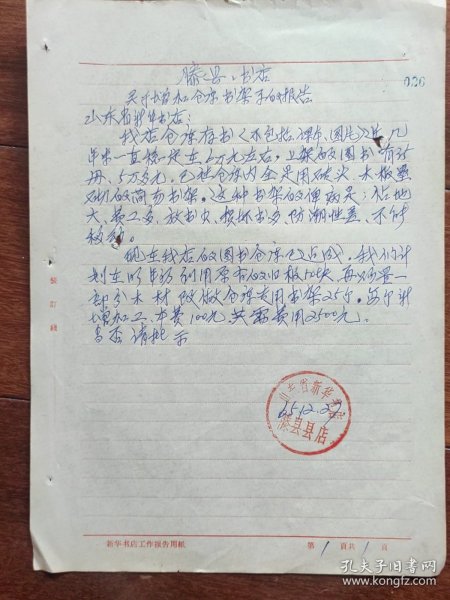 滕县书店
关于增加仓库书架子的报告
006
山东省新华书店：
我店仓库存书（不包括课本、图片）近几
年来一直接近在6万元左右，上架的图书有35
册、5万多元，已往仓库内全是用砖头、木板叠
砌的简易书架。这种书架的弊病是：占地
大、费工多、放书少、损坏书多、防潮性差、不能
移动。
现在我店的图书仓库已占成。我们计
划在明年结利用原有的旧板50块，再购置一
部分木材改做仓库专用书架25个。每个计
增加工、木费100元，共需费用2500元。
当否请批示
山东省新华书店
65.12.27
滕县县店
装订线
新华书店工作报告用纸
第1页共1页
孔夫子旧书网
www.kongfz.com